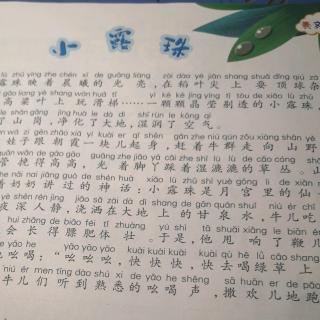 小露珠
lù zhū yìng zhe chén xī de guāng liàng zài dào yè jiān shang shuǎ dǐng qiú zá
露珠映着晨曦的光亮，在稻叶尖上耍顶球杂
gāo liang yè shang wán huá tī yì kē kē jīng yíng tī tòu de xiǎo lù zhū
高粱叶上玩滑梯……一颗颗晶莹剔透的小露珠，
le shān gāng jìng huà le dà dì shī rùn le kōng qì
了山岗，净化了大地，湿润了空气。
wá zi gēn zhāo xiá yí kuài er qǐ shēn gǎn zhe niú qún zǒu xiàng shān yě
娃子跟朝霞一块儿起身，赶着牛群走向山野
guǎn wǎn de gāo gāo guāng zhe jiǎo yā cǎi zhe shī lù lù de cǎo cóng shān
管挽得高高，光着脚丫踩着湿漉漉的草丛。山
zhe nǎi nai jiǎng guò de shén huà xiǎo lù zhū shì yuè gōng lǐ de xiān
着奶奶讲过的神话：小露珠是月宫里的仙
yè shēn rén jìng jiāo sǎ zài dà dì shang de gān quán shuǐ niú ér chī
夜深人静，浇洒在大地上的甘泉水，牛儿吃
huì zhǎng de biāo féi tǐ zhuàng yú shì tā shuǎi xiǎng le biān ér
会长得膘肥体壮。于是，他甩响了鞭儿
yāo he yāo yāo yāo kuài kuài kuài kuài qù hē lǜ cǎo shang
吆喝：“吆吆吆，快快快，快去喝绿草上
niú ér men tīng dào shú xī de yāo he shēng sā huān er de pǎo
牛儿们听到熟悉的吆喝声，撒欢儿地跑